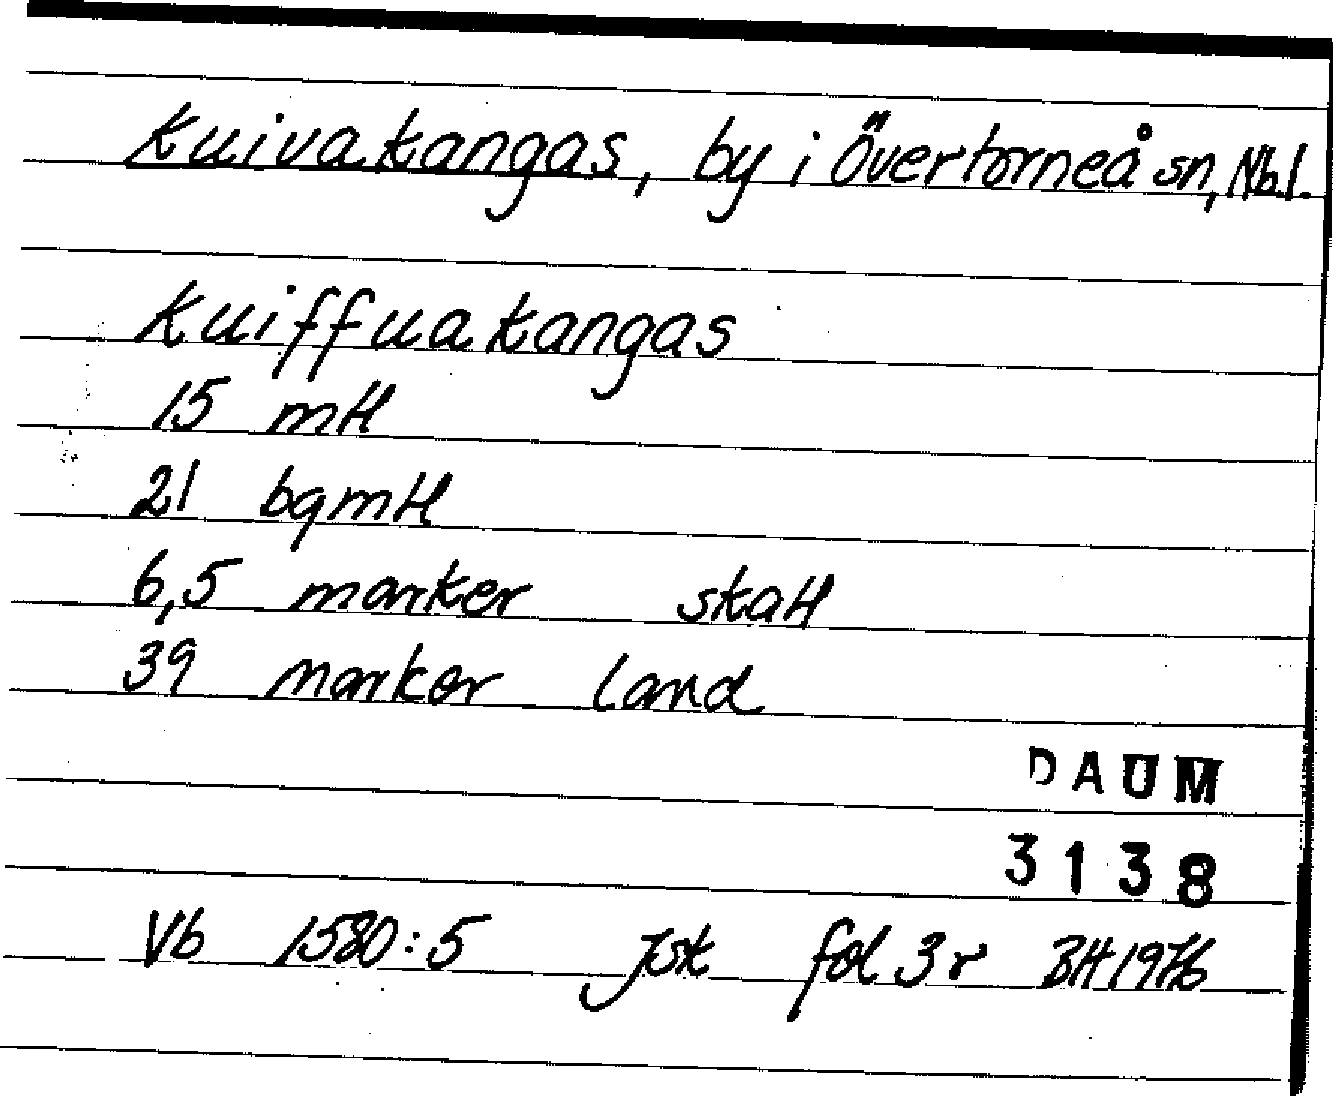 Kuivakangas, by i Övertorneå sn, Nb.l.
Kuiffuakangas
15 mtl
21 bgmtl
6,5 marker skatt
39 marker land
DAUM
3138
Vb 1580:5 Jsk fol 3r BH 1976